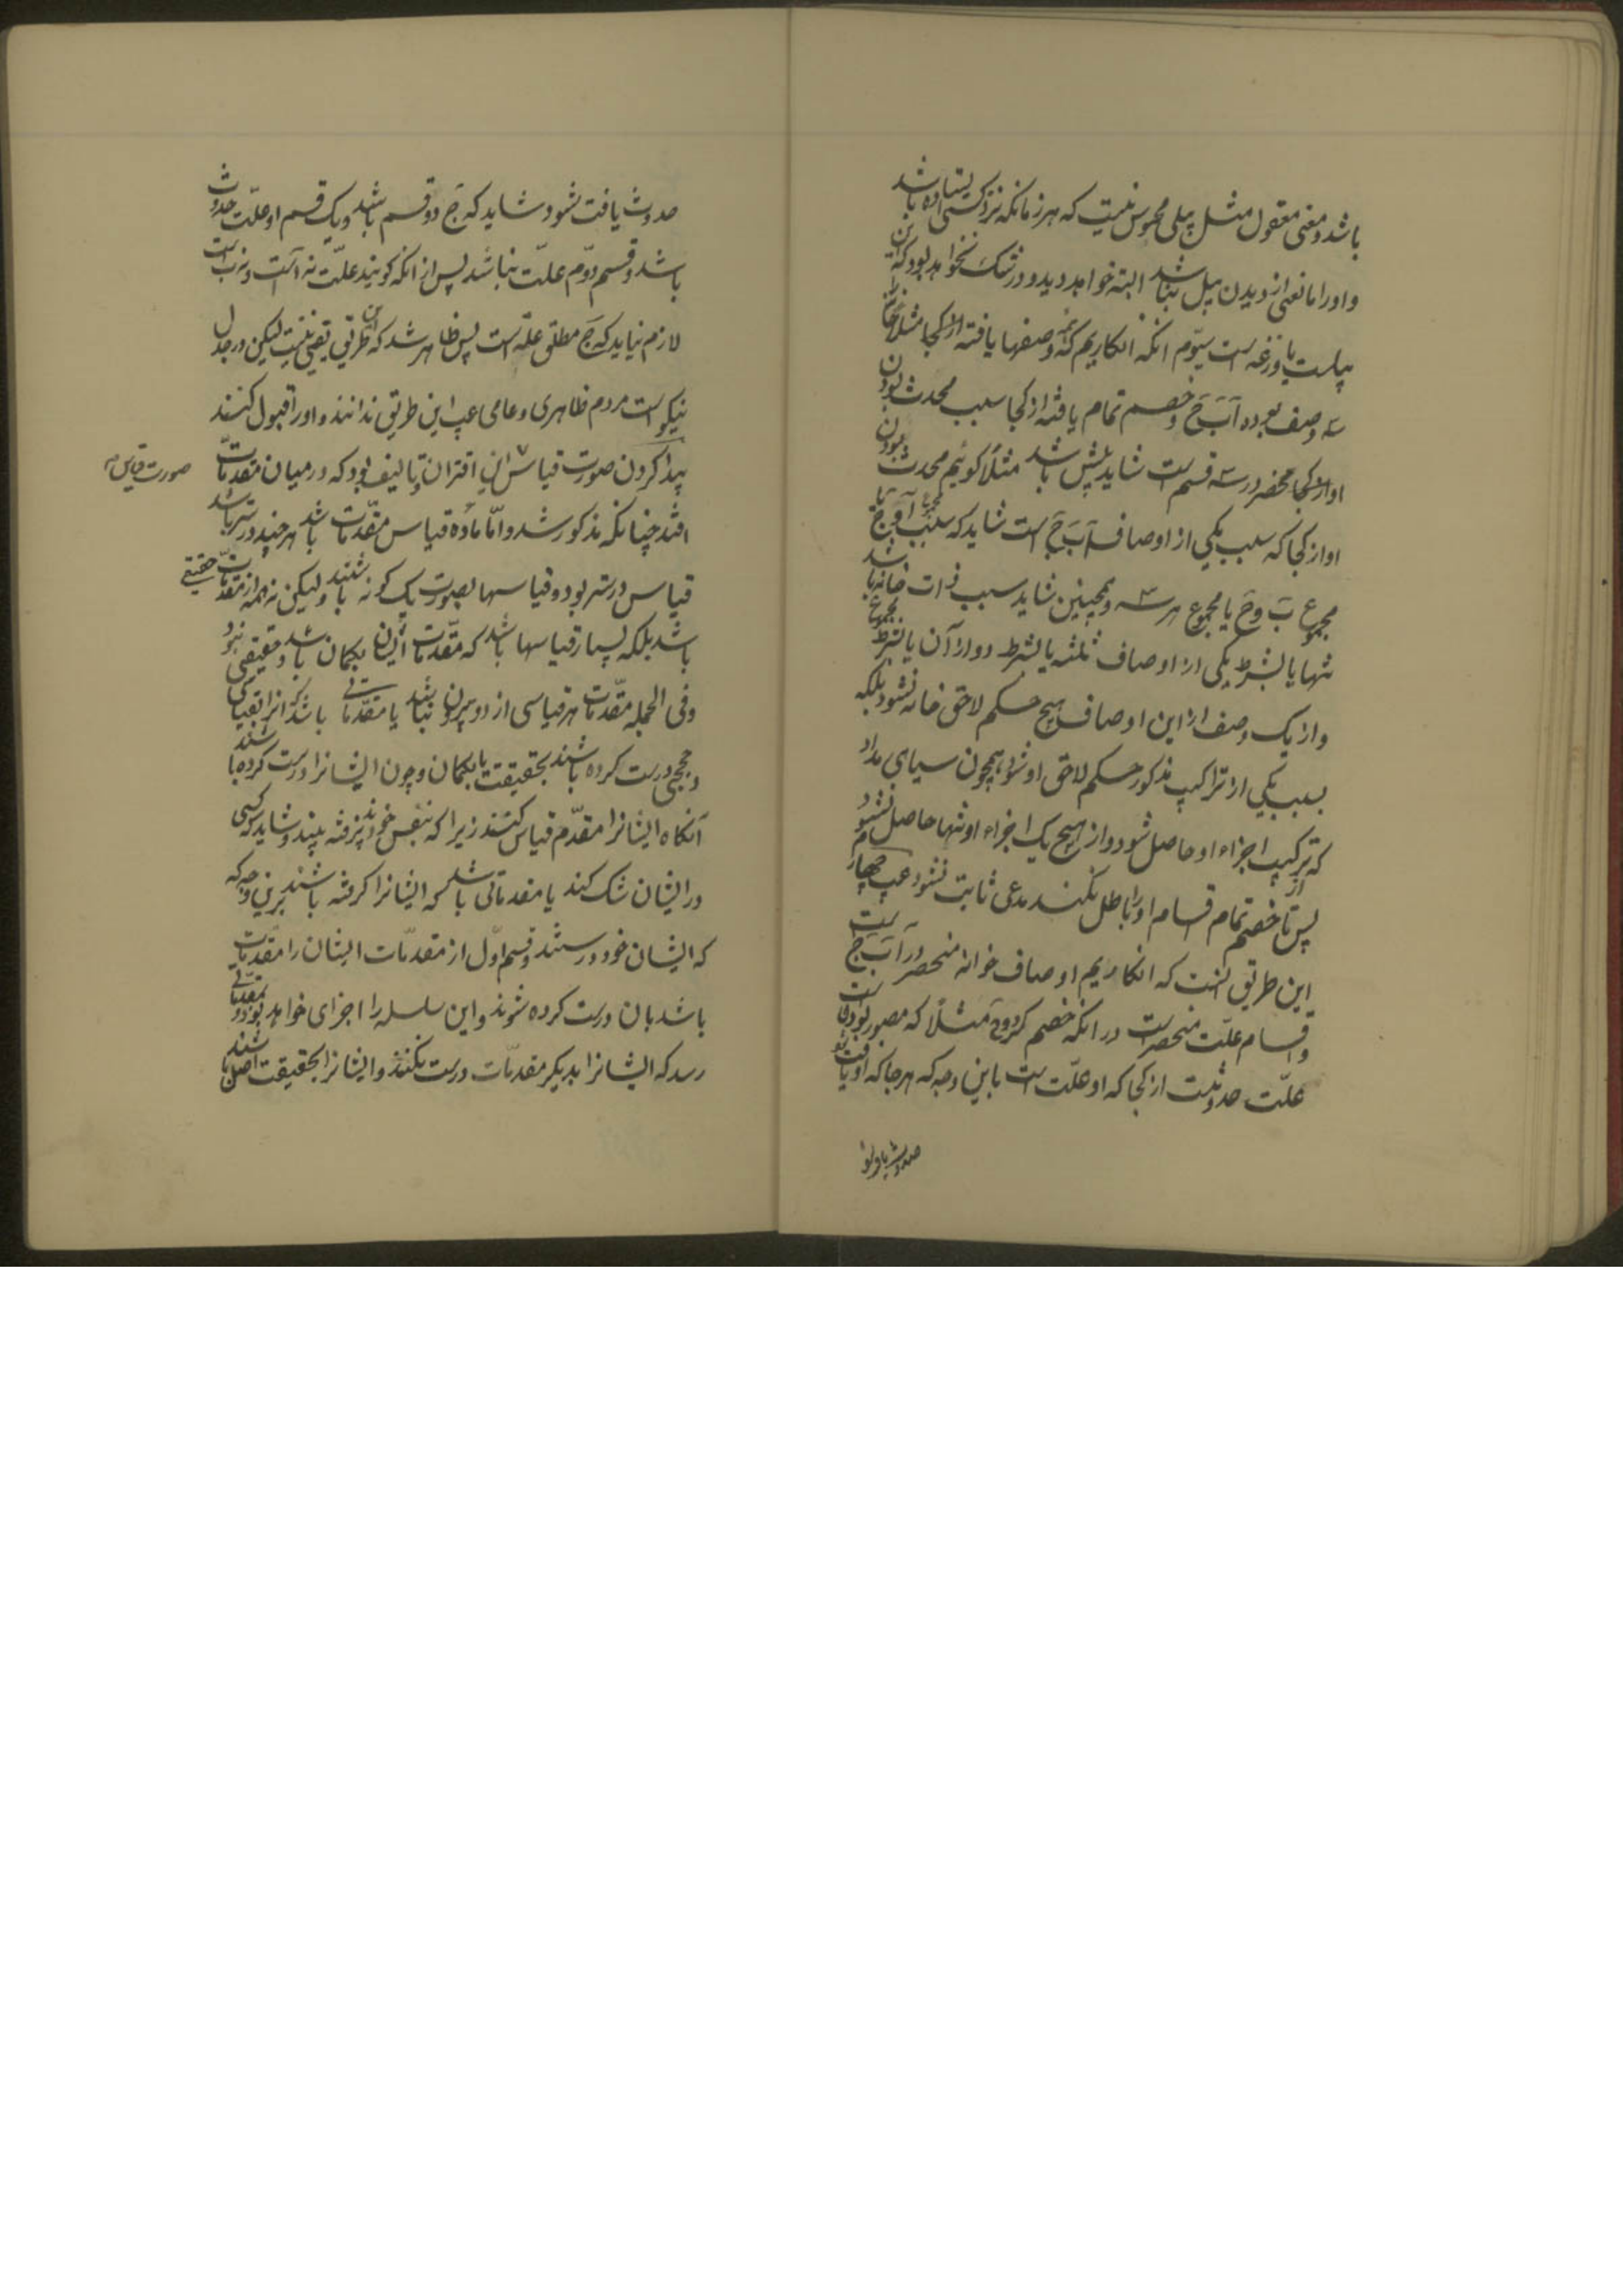 باشد و معنی معقول مثل پیلی محسوس نیست که هر زمانکه نزد کسی ایستاده باشد
و او را مانعی از دیدن پیل نباشد البته خواهد دید و در شک نخواهد بود که این
پیلست یا وزغه است سیّوم انکه انکاریم که همه وصفها یافته از کجا مثلاً خانه
سه وصف بوده آ بَ جَ و خصم تمام یافته از کجا سبب محدث بودن
او از کجا منحصر در سه قسم است شاید بیش باشد مثلاً کوئیم محدث بودن
او از کجا که سبب یکی از اوصاف آ بَ جَ است شاید که سبب مجموع آ و جَ یا
مجموع بَ و جَ یا مجموع هر سه و همچنین شاید سبب ذات خانه باشد
تنها یا بشرط یکی از اوصاف ثلثه یا بشرط دو از آن یا بشرط مجموع
و از یک وصف از این اوصاف هیچ حکم لاحق خانه نشود بلکه
بسبب یکی از تراکیب مذکور حکم لاحق او شود همچون سیاهی مداد
که از ترکیب اجزاء او حاصل شود و از هیچ یک اجزاء او تنها حاصل نشود
پس تا خصم تمام اقسام او را باطل نکند مدعی ثابت نشود عیب چهارم
این طریق آنست که انکاریم اوصاف خوانه منحصر در آ بَ جَ است
و اقسام علّت منحصر است در انکه خصم کرد و جَ مثلاً که مصور بودنست
علّت حدوثست از کجا که او علّت است باین وجه که هر جا که او یافت شود
حدوث یافت شود
حدوث یافت شود شاید که جَ دو قسم باشد و یک قسم او علّت حدوث
باشد و قسم دوّم علّت نباشد پس از انکه کویند علّت نه آ است و نه بَ است
لازم نیاید که جَ مطلق علّة است پس ظاهر شد که این طریق یقینی نیست لیکن در جدل
نیکو است مردم ظاهری و عامی عیب این طریق ندانند و او را قبول کنند
پیدا کردن صورت قیاس از اقتران و تالیف بود که در میان مقدمات
صورت قیاس
افتد چنانکه مذکور شد و امّا مادّه قیاس مقدّمات باشد هر چند درستر باشد
قیاس درستر بود و قیاسها بصورت یک کونه باشند و لیکن نه همه از مقدّمات حقیقی
باشد بلکه بسیار قیاسها باشد که مقدّمات ایشان بکمان باشد و حقیقی نبود
و فی الجمله مقدّمات هر قیاسی از دو بیرون نباشد یا مقدّماتی باشد که انرا بقیاسی
و حجتی درست کرده باشند بحقیقت یا بکمان و چون ایشانرا درست کرده باشند
آنکاه ایشانرا مقدّم قیاس کنند زیرا که بنفس خود پذیرفته نیند و شاید که کسی
در ایشان شک کند یا مقدماتی باشد که ایشانرا کرفته باشند برین وجه که
که ایشان خود درستند و قسم اوّل از مقدمّات ایشان را مقدّمات
باشد بان درست کرده شوند و این سلسله را اجزای خواهد بود و بمقدماتی
رسد که ایشانرا بدیکر مقدمّات درست نکنند و ایشانرا بحقیقت اصل باشند